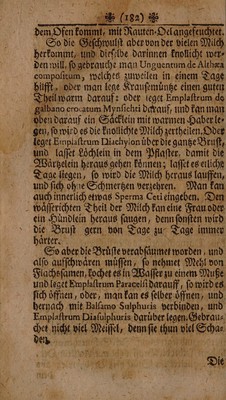 (182)
dem Ofen kommt, mit Rauten-Oel angefeuchtet.
So die Geschwulst aber von der vielen Milch
herkommt, und dieselbe darinnen knollicht wer-
den will, so gebrauche man Unguentum de Althæa
compositum, welches zuweilen in einem Tage
hilfft, oder man lege Krausemüntze einen guten
Theil warm darauf; oder leget Emplastrum de
galbano crocatum Mynsichti darauf, und kan man
oben darauf ein Säcklein mit warmen Haber le-
gen, so wird es die knollichte Milch zertheilen. Oder
leget Emplastrum Diachylon über die gantze Brust,
und lasset Löchlein in dem Pflaster, damit die
Wärtzlein heraus gehen können; lasset es etliche
Tage liegen, so wird die Milch heraus lauffen,
und sich ohne Schmertzen verzehren. Man kan
auch innerlich etwas Sperma Ceti eingeben. Den
wässerichten Theil der Milch kan eine Frau oder
ein Hündlein heraus saugen, denn sonsten wird
die Brust gern von Tage zu Tage immer
härter.
So aber die Brüste verabsäumet worden, und
also aufschwären müssen, so nehmet Mehl von
Flachssamen, kochet es in Wasser zu einem Muße
und leget Emplastrum Paracelsi darauff, so wird es
sich öffnen, oder, man kan es selber öffnen, und
hernach mit Balsamo Sulphuris verbinden, und
Emplastrum Diasulphuris darüber legen. Gebrau-
chet nicht viel Meissel, denn sie thun viel Scha-
den.
Die